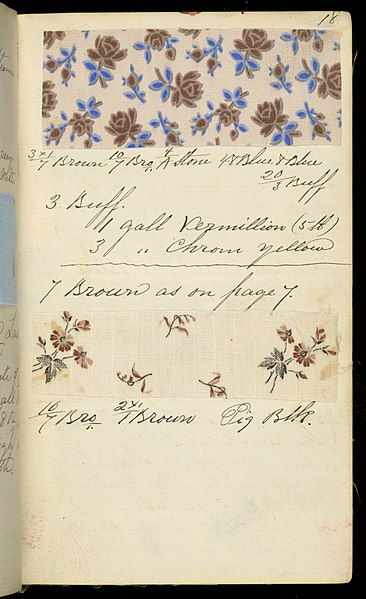 18
3x1/7 Brown 10/7 Bro. 4/A Stone 48 Blue 8 Blue
20/3 Buff
3 Buff.
1 gall Vermillion (5 lb)
3 " Chrom yellow
7 Brown as on page 7.
10/7 Bro. 2x1/1 Brown Pig Blk.